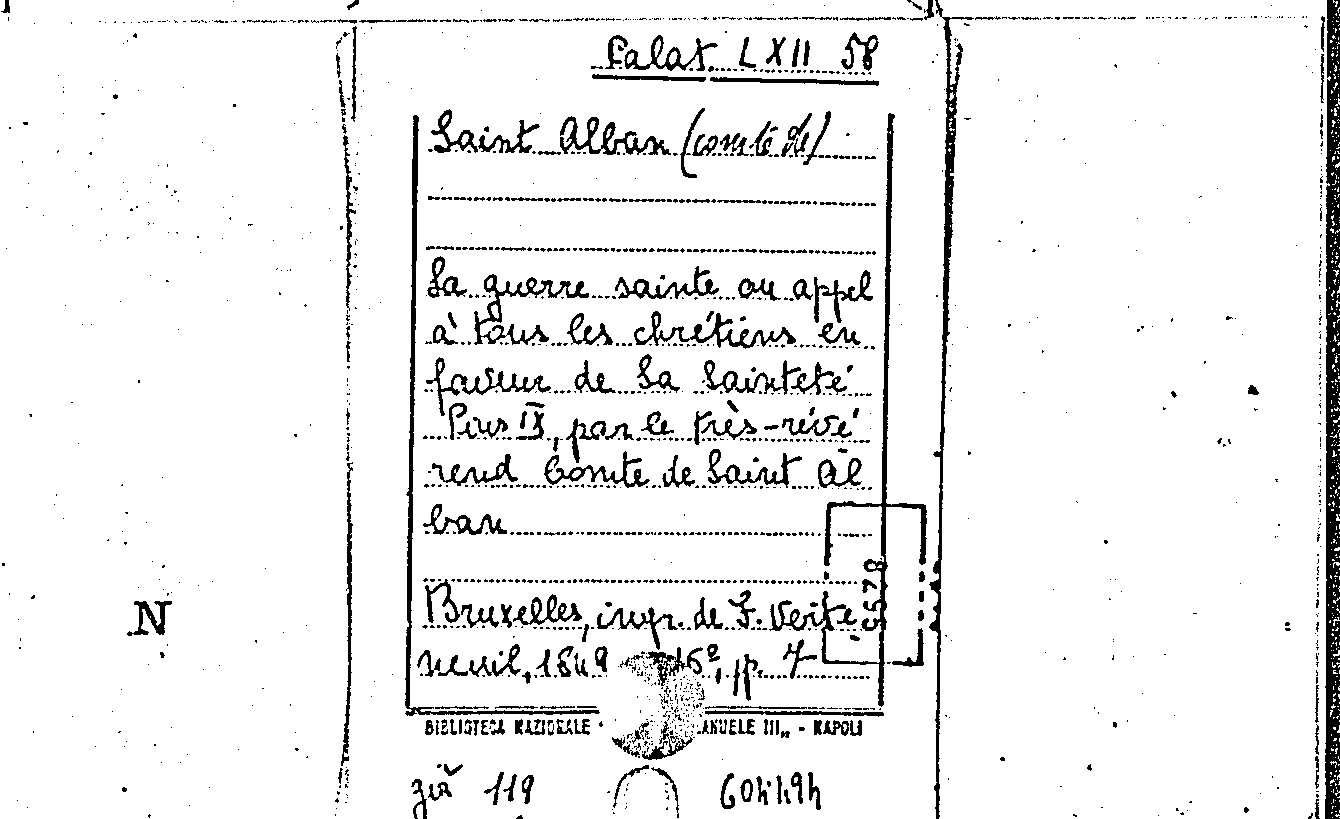 Palat. LXII 58
Saint Alban (comte de)
La guerre sainte ou appel
à tous les chrétiens en
faveur de Sa Sainteté
Pius IX, par le très-révé
rend Comte de Saint Al
ban
Bruxelles, impr. de J. Verte
neuil, 1849 16°, pp. 7
BIBLIOTECA NAZIONALE ANUELE III„ - NAPOLI
già 119
N